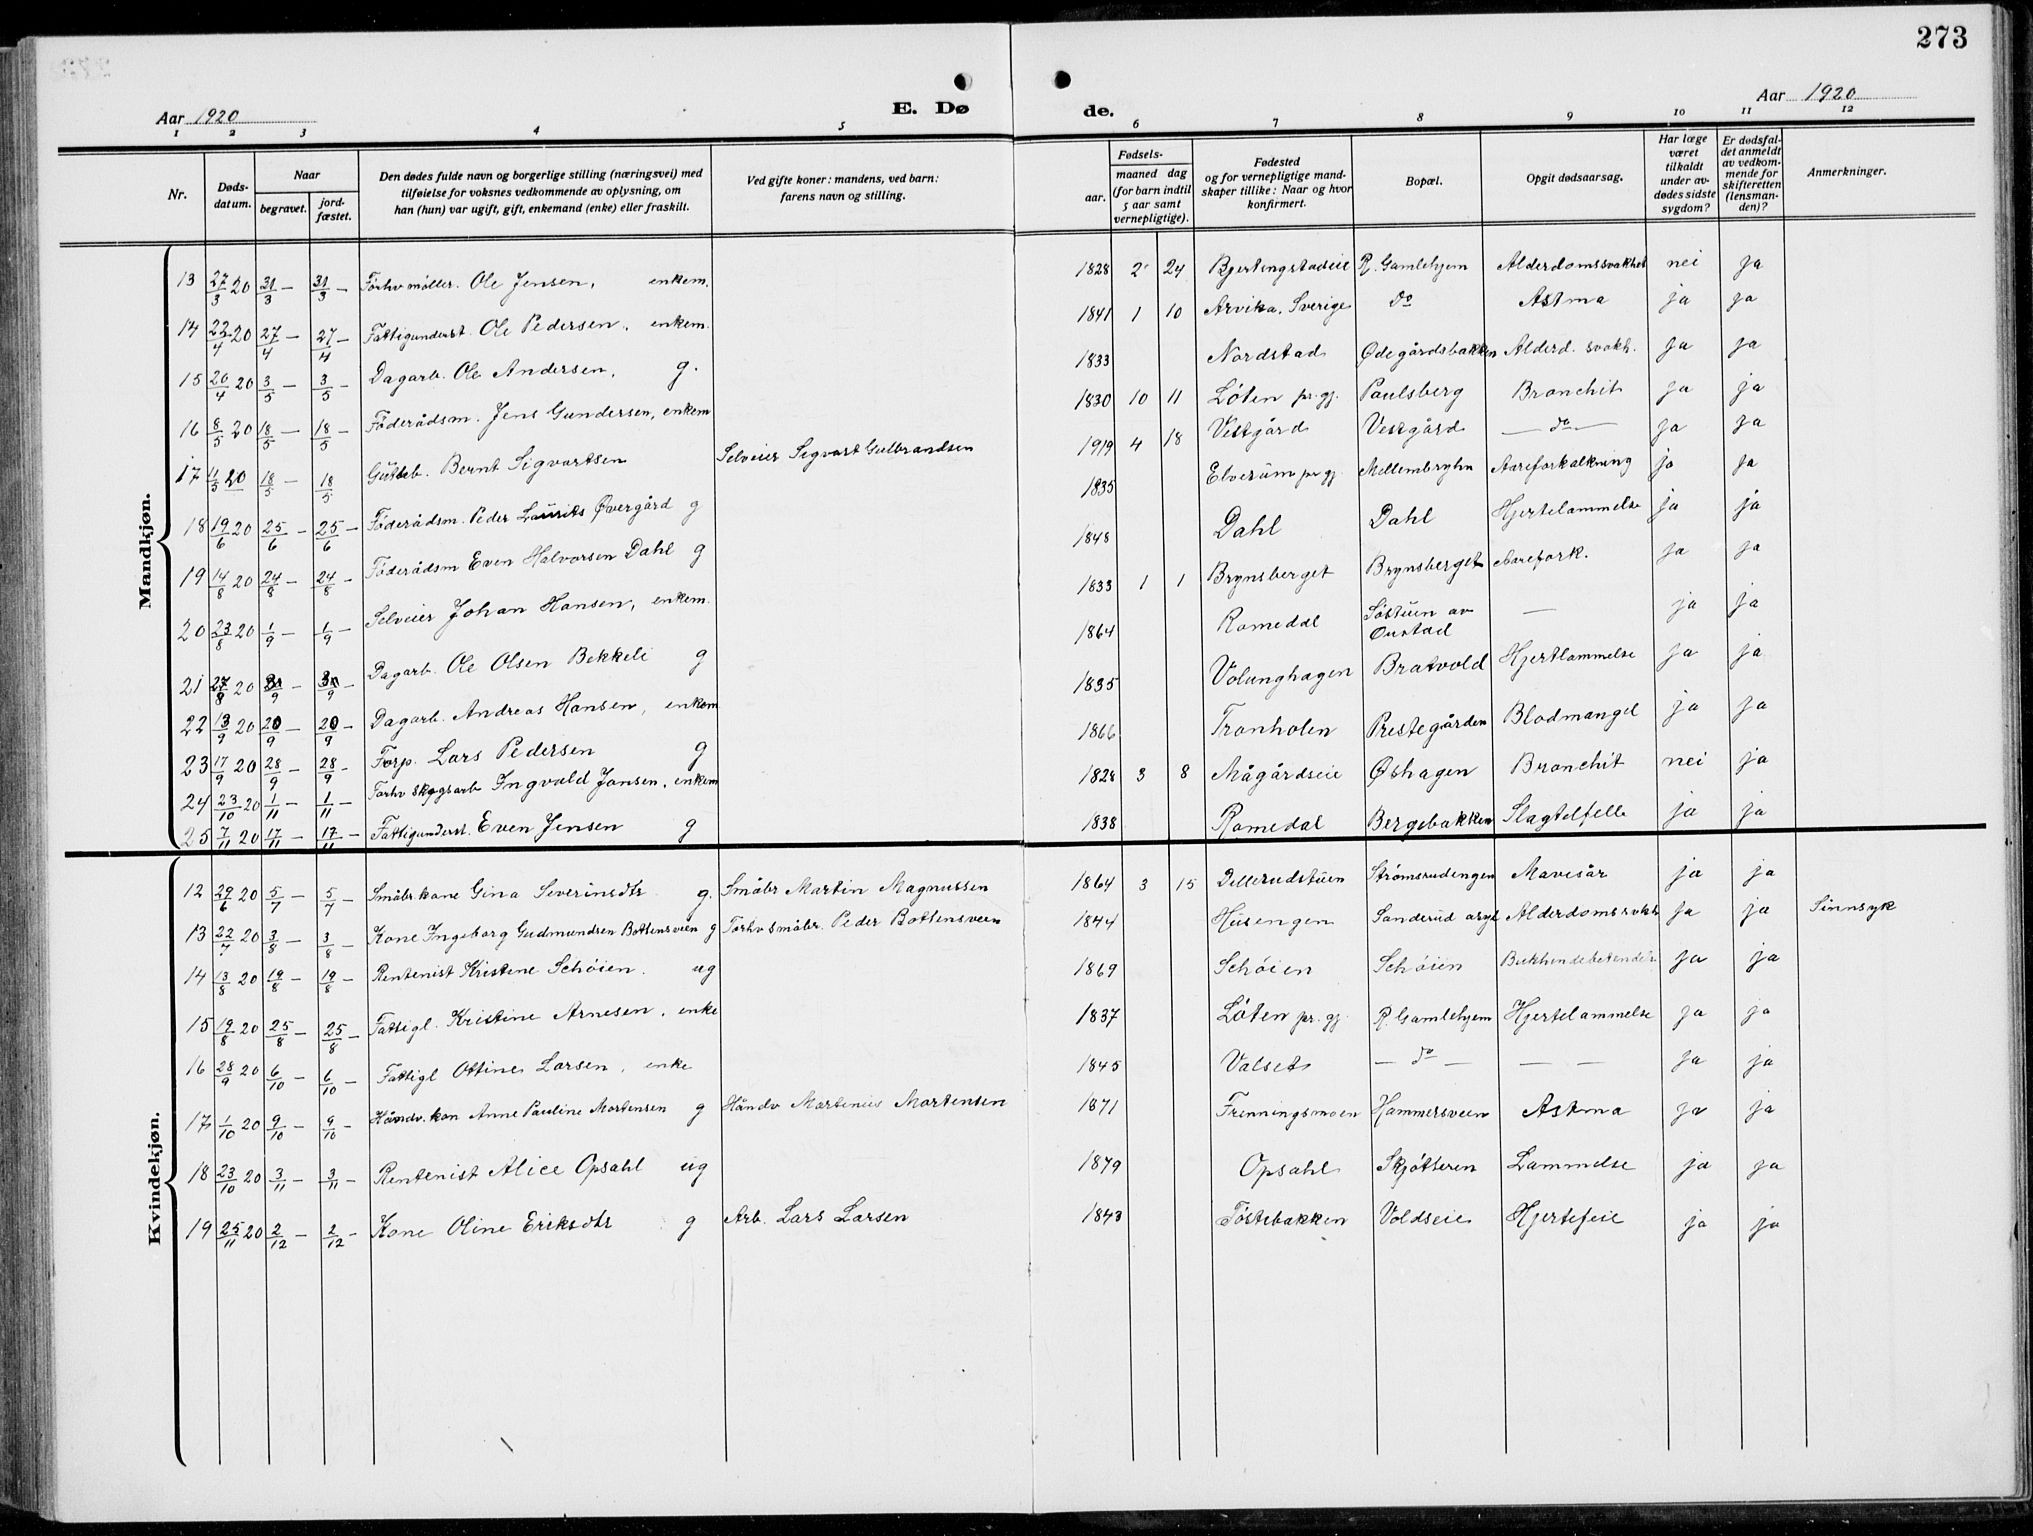 273
Aar 1920
E. Dø
de.
Aar 1920
1 2 3 4 5 6 7 8 9 10 11 12
Nr.
Døds-
datum.
Naar
begravet.
jord-
fæstet.
Den dødes fulde navn og borgerlige stilling (næringsvei) med
tilføielse for voksnes vedkommende av oplysning, om
han (hun) var ugift, gift, enkemand (enke) eller fraskilt.
Ved gifte koner: mandens, ved barn:
farens navn og stilling.
Fødsels-
aar.
maaned dag
(for barn indtil
5 aar samt
vernepligtige).
Fødested
og for vernepligtige mand-
skaper tillike: Naar og hvor
konfirmert.
Bopæl.
Opgit dødsaarsag.
Har læge
været
tilkaldt
under av-
dødes sidste
sygdom?
Er dødsfal-
det anmeldt
av vedkom-
mende for
skifteretten
(lensman-
den)?
Anmerkninger.
Mandkjøn.
13 27/3 20 31/3 — 31/3 — Forhv møller. Ole Jensen, enkem. 1828 2 24 Bjertingstadeie R. Gamlehjem Alderdomssvakhet nei ja
14 22/4 20 27/4 — 27/4 — Fattigunderst. Ole Pedersen, enkem. 1841 1 10 Arvika, Sverige do Astma ja ja
15 20/4 20 3/5 — 3/5 — Dagarb. Ole Andersen, g. 1833 Nordstad Ødegårdsbakken Alderd. svakh. ja ja
16 8/5 20 18/5 — 18/5 — Føderådsm. Jens Gundersen, enkem 1830 10 11 Løten pr. gj. Paulsberg Bronchit ja ja
17 11/5 20 18/5 — 18/5 Gutteb. Bernt Sigvartsen Selveier Sigvart Gulbrandsen 1919 4 18 Vestgård Vestgård — do — ja ja
18 19/6 20 25/6 — 25/6 — Føderådsm. Peder Laurits Øvergård g 1835 Elverum pr gj. Mellembryhn Aareforkalkning ja ja
19 14/8 20 24/8 — 24/8 — Føderådsm Even Halvorsen Dahl g 1848 Dahl Dahl Hjertelammelse ja ja
20 23/8 20 1/9 — 1/9 — Selveier Johan Hansen, enkem. 1833 1 1 Brynsberget Brynsberget Aarefork. ja ja
21 27/8 20 — — Dagarb. Ole Olsen Bekkeli g 1864 Romedal Søstuen av Oustad — ja ja
22 13/9 20 20/9 — 20/9 — Dagarb. Andreas Hansen, enkem 1835 Volunghagen Bratvold Hjertlammelse ja ja
23 17/9 20 28/9 — 28/9 — Forp. Lars Pedersen g 1866 Tronholen Prestegården Blodmangel ja ja
24 23/10 20 1/11 — 1/11 — Forhv skogsarb Ingvald Jansen, enkem 1828 3 8 Mågårdseie Øshagen Bronchit nei ja
25 7/11 20 17/11 — 17/11 — Fattigunderst. Even Jensen g 1838 Romedal Bergebakken Slagtilfelle ja ja
Kvindekjøn.
12 29/6 20 5/7 — 5/7 — Småbr.kone Gina Severinsdtr g. Småbr Martin Magnussen 1864 3 15 Dellerudstuen Strømsrudengen Mavesår ja ja
13 22/7 20 3/8 — 3/8 — Kone Ingeborg Gudmundsen Bottensveen g Forhv småbr. Peder Bottensveen 1844 Husengen Sanderud asyl Alderdomssvkh ja ja Sinnsyk
14 13/8 20 19/8 — 19/8 — Rentenist Kristene Schøien. ug 1869 Schøien Schøien Bukhindebetendelse ja ja
15 19/8 20 25/8 — 25/8 — Fattigl. Kristine Arnesen, enke 1837 Løten pr. gj. R. Gamlehjem Hjertelammelse ja ja
16 28/9 20 6/10 — 6/10 — Fattigl Ottine Larsen, enke 1845 Valset — do — — — ja ja
17 1/10 20 9/10 — 9/10 — Håndv.kon Anne Pauline Mortensen g Håndv Martenius Mortensen 1871 Frenningsmoen Hammersveen Astma ja ja
18 23/10 20 3/11 — 3/11 — Rentenist Alice Opsahl ug 1879 Opsahl Skjøtteren Lammelse ja ja
19 25/11 20 2/12 — 2/12 — Kone Oline Eriksdtr g Arb. Lars Larsen 1843 Tøstebakken Voldseie Hjertefeil ja ja